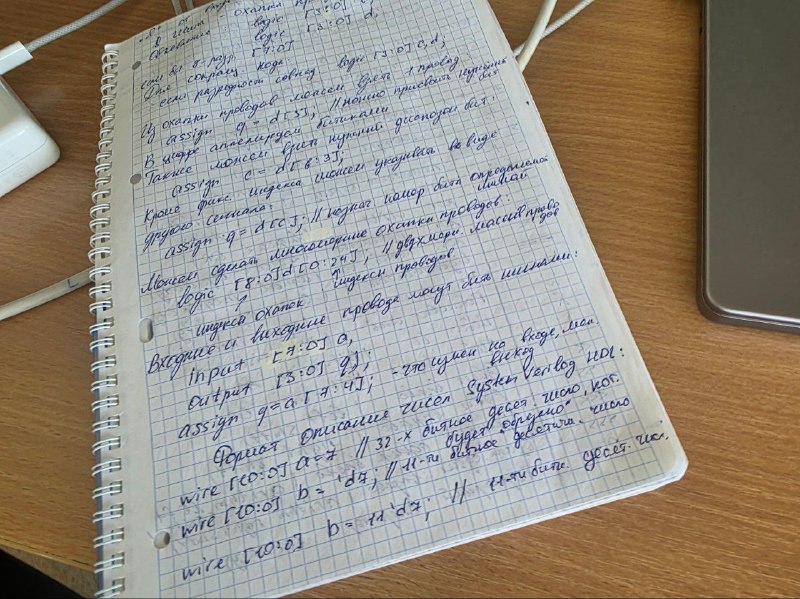 logic [3:0] d;
Для сокращ. кода
если разрядность совпад. logic [3:0] c, d;
Из охапки проводов можем брать 1 провод
assign q = d[3]; // можно присвоить
В цифре аппелируем битиками бит
Также можем брать нужный диапозон бит:
assign c = d[6:3];
Кроме фикс. индекса можем указывать ввиде
другого сигнала:
assign q = d[c]; // значит номер бита определяемой
Можем сделать многомерные охапки проводов:
logic [8:0] d [0:24]; // двухмерн. массив прово
дов
↑ индексы проводов
индексы охапок
Входные и выходные провода могут быть шинами:
input [7:0] a,
output [3:0] q);
assign q = a[7:4]; - что измен на входе, мен.
выход
Формат описание чисел System Verilog HDL:
wire [10:0] a = 7 // 32-х битное десят. число, кот.
будет "обрезано"
wire [10:0] b = 'd7; // 11-ти битное десятичн. число
wire [10:0] b = 11'd7; // 11-ти битн. десят. чис.